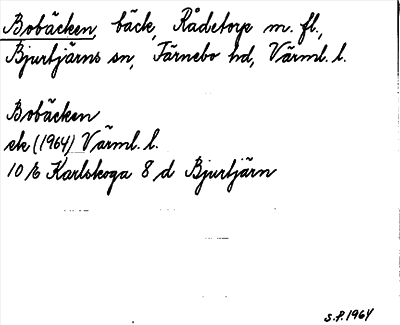 Bobäcken, bäck, Rådetorp m. fl.,
Bjurtjärns sn, Färnebo hd, Värml. l.
Bobäcken
ek (1964) Värml. l.
10 E Karlskoga 8 d Bjurtjärn
S.P. 1964